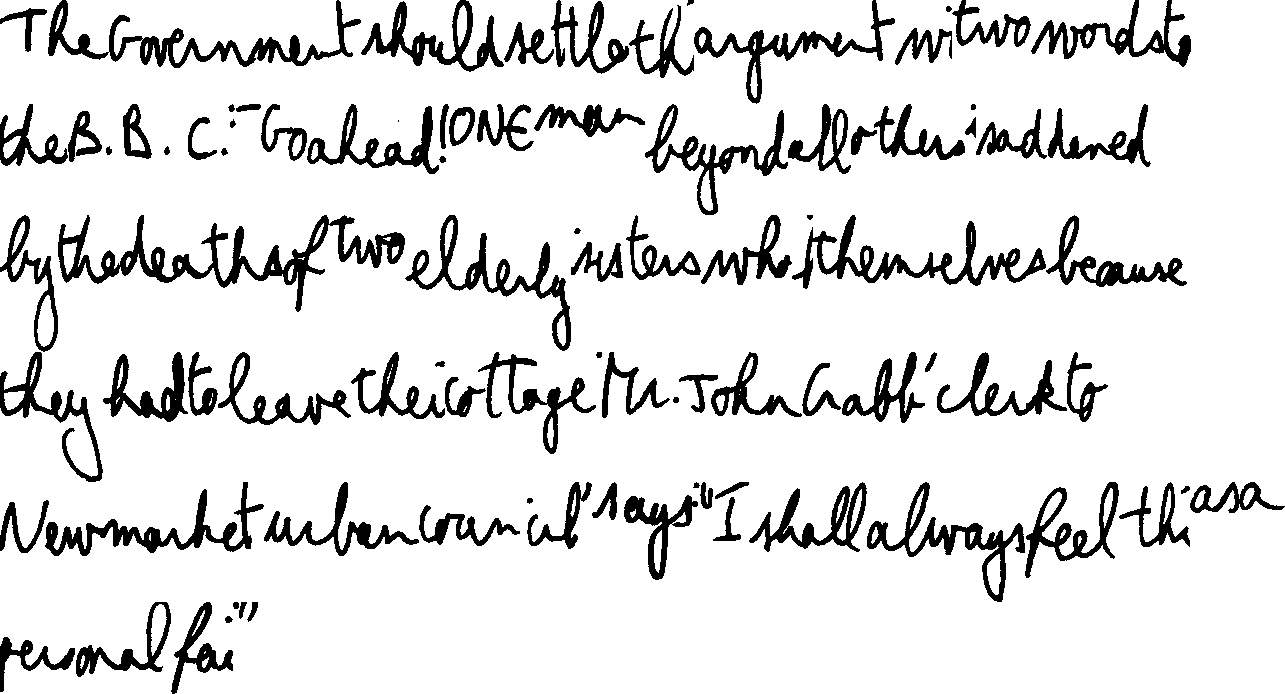 The Government should settle th argument wi two words to
the B. B. C. :- "Go ahead! ONE man beyond all others is saddened
by the deaths of two elderly sisters who themselves because
they had to leave thei cottage Mr. John Crabb' clerk to
Newmarket urban council' says: "I shall always feel thi as a
personal fai."